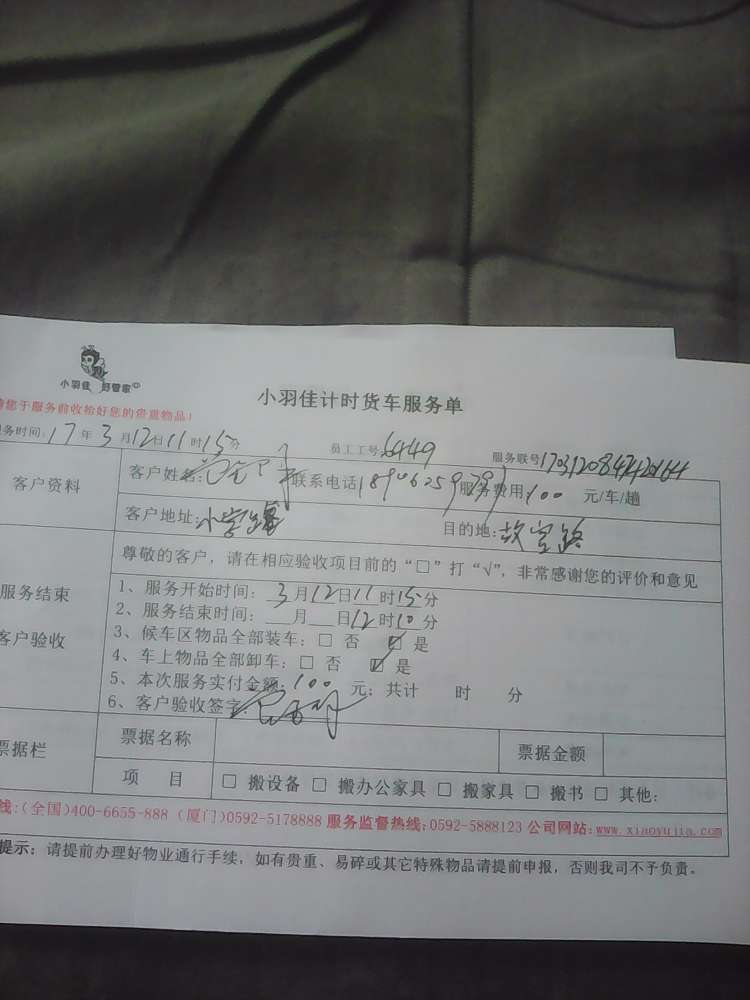 小羽佳 管家
小羽佳计时货车服务单
请您于服务前收拾好您的贵重物品!
务时间:17年3月12日11时15分 员工工号:6449 服务联号
客户资料 客户姓名: 联系电话 服务费用:100 元/车/趟
客户地址:小学路 目的地:故宫路
尊敬的客户,请在相应验收项目前的“□”打“√”,非常感谢您的评价和意见
服务结束
客户验收
1、服务开始时间:3月12日11时15分
2、服务结束时间:__月__日12时10分
3、候车区物品全部装车:□ 否 ☑ 是
4、车上物品全部卸车:□ 否 ☑ 是
5、本次服务实付金额:100 元;共计 时 分
6、客户验收签字:
票据栏 票据名称 票据金额
项 目 □ 搬设备 □ 搬办公家具 □ 搬家具 □ 搬书 □ 其他:
线:(全国)400-6655-888 (厦门)0592-5178888 服务监督热线:0592-5888123 公司网站:www.xiaoyujia.com
提示:请提前办理好物业通行手续,如有贵重、易碎或其它特殊物品请提前申报,否则我司不予负责。